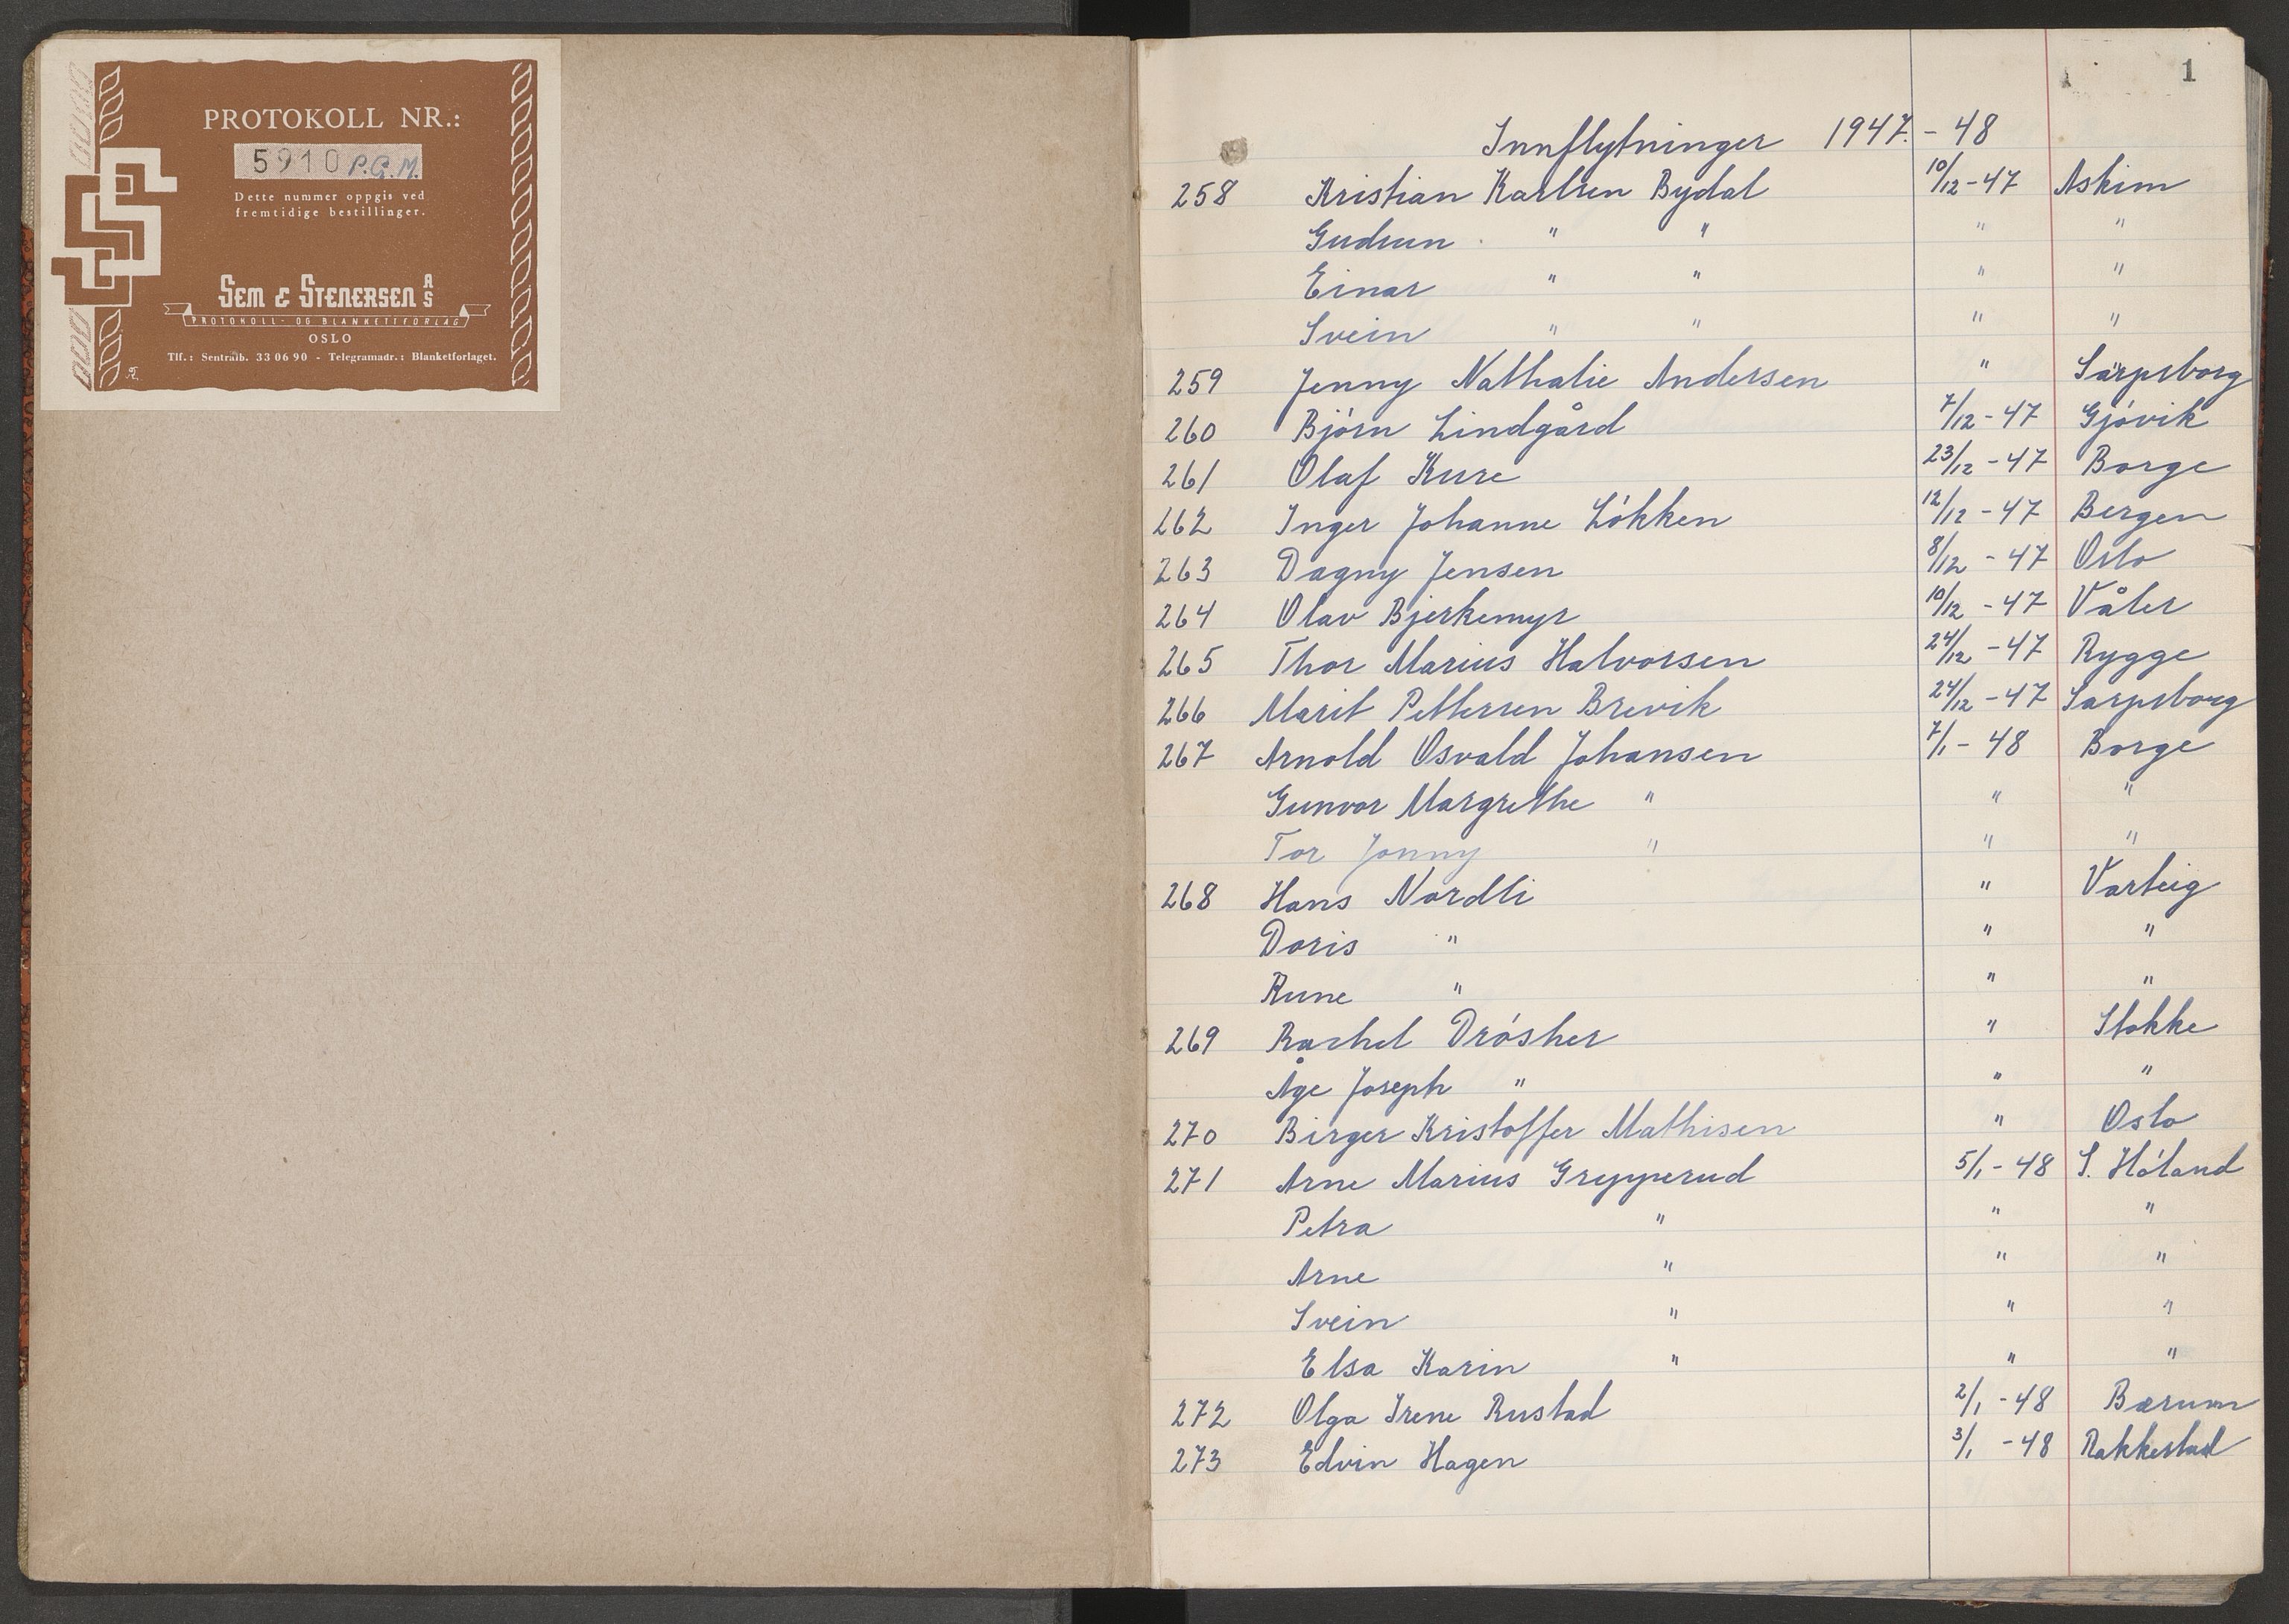 PROTOKOLL NR.:
5910 P.G.M.
Dette nummer oppgis ved
fremtidige bestillinger.
SEM & STENERSEN A/S
PROTOKOLL- OG BLANKETTFORLAG
OSLO
Tlf.: Sentralb. 33 06 90 - Telegramadr.: Blanketforlaget.
1
Innflytninger 1947 - 48
258 Kristian Karlsen Bydal 10/12-47 Askim
Gudrun " " " "
Einar " " " "
Svein " " " "
259 Jenny Nathalie Andersen " Sarpsborg
260 Bjórn Lindgård 7/12-47 Gjóvik
261 Olaf Kure 23/12-47 Borge
262 Inger Johanne Lókken 12/12-47 Bergen
263 Dagny Jensen 8/12-47 Oslo
264 Olav Bjerkemyr 10/12-47 Våler
265 Thor Marius Halvorsen 24/12-47 Rygge
266 Marit Pettersen Brevik 24/12-47 Sarpsborg
267 Arnold Osvald Johansen 7/1-48 Borge
Gunvor Margrethe " " "
Tor Jonny " " "
268 Hans Nordli " Varteig
Doris " " "
Rune " " "
269 Rachel Drósher " Stokke
Åge Joseph " " "
270 Birger Kristoffer Mathisen " Oslo
271 Arne Marius Grypperud 5/1-48 S. Hóland
Petra " " "
Arne " " "
Svein " " "
Elsa Karin " " "
272 Olga Irene Rustad 2/1-48 Bærum
273 Edvin Hagen 3/1-48 Rakkestad